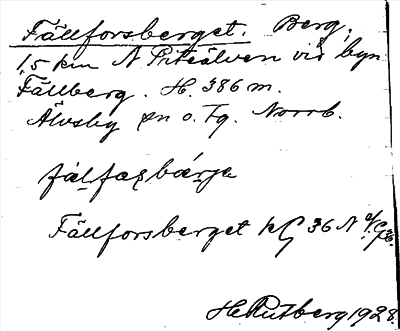 Fällforsberget. Berg,
1,5 km N Piteälven vid byn
Fällberg. H. 386 m.
Älvsby sn o. Tg. Norrb.
Fällforsberget kG 36 N
H. Rutberg 1928.